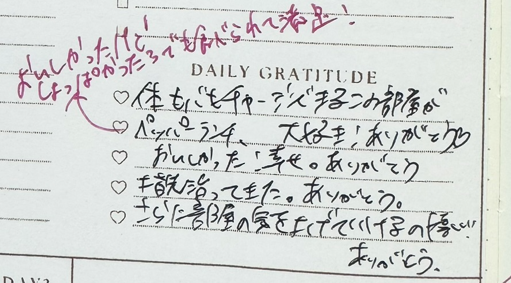 おいしかったけど
しょっぱかったろでも食べられて満足!
DAILY GRATITUDE
体も心もチャージできるこの部屋が
大好き!ありがとう
ペッパーランチ、
おいしかった!幸せ。ありがとう
治ってきた。ありがとう。
さらに部屋の気を上げていける
ありがとう。